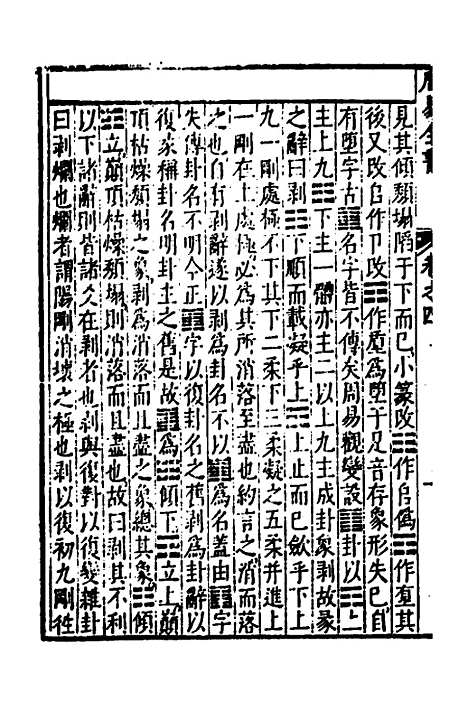 見其傾頽塌䧟于下而巳小篆攺☶作𨸏爲☷作𡍮其
後又攺𨸏作卩攺☷作㐆爲堕于足音存象形失巳自
有墮字古䷖名字皆不傳矣周易觀變設䷖卦以☶上
主上九☶下主一體亦主二以上九主成卦象剥故彖
之辭曰剥☷下順而載凝乎上☶上止而巳歛乎下上
九一剛處極不下其下二柔下三柔凝之五柔并進上
一剛在上處極必爲其所消落至盡也約言之消而落
之也自有剥辭遂以剥爲卦名不以䷖爲名蓋由䷖字
失傳卦名不明今正䷖字以復卦名之舊剥爲卦辭以
復彖稱卦名明卦主之舊是故䷖爲☷傾下☶立上巔
頂枯燥頽塌之象剥爲消落而且盡之象總其象☷傾
☶立巔頂枯燥頽塌則消落而且盡也故曰剥其不利
以下諸辭則皆諸爻在剥者也剥與復對以復變雜卦
曰剥爛也爛者謂陽剛消壞之極也剥以復初九剛徃
周易全書
卷之四